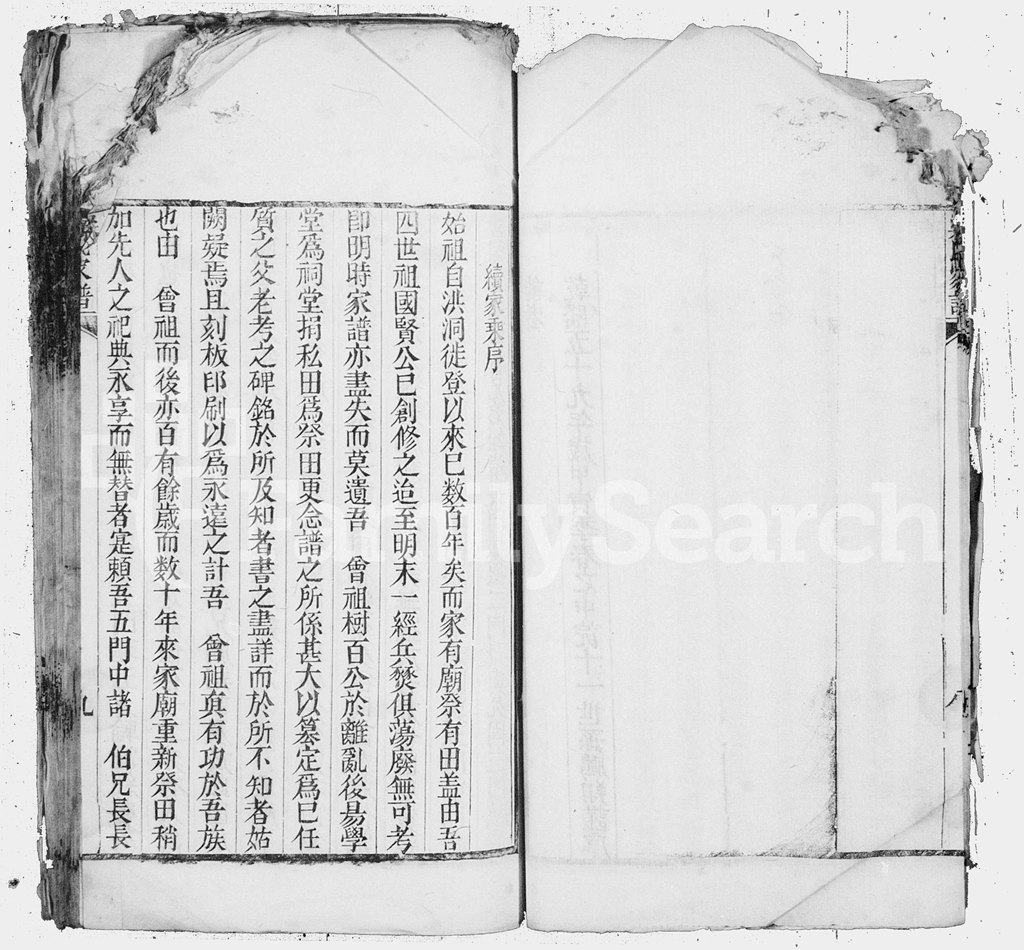 續家乘序
始祖自洪洞徙登以來已数百年矣而家有廟祭有田盖由吾
四世祖國賢公已創修之迨至明末一經兵燹俱蕩廢無可考
即明時家譜亦盡失而莫遺吾 曾祖樹百公於離亂後昜學
堂爲祠堂捐私田爲祭田更念譜之所係甚大以纂定爲已任
質之父老考之碑銘於所及知者書之盡詳而於所不知者姑
闕疑焉且刻板印刷以爲永遠之計吾 曾祖真有功於吾族
也由 曾祖而後亦百有餘歲而数十年來家廟重新祭田稍
加先人之祀典永享而無替者寔頼吾五門中諸 伯兄長長
家譜
九
八
FamilySearch